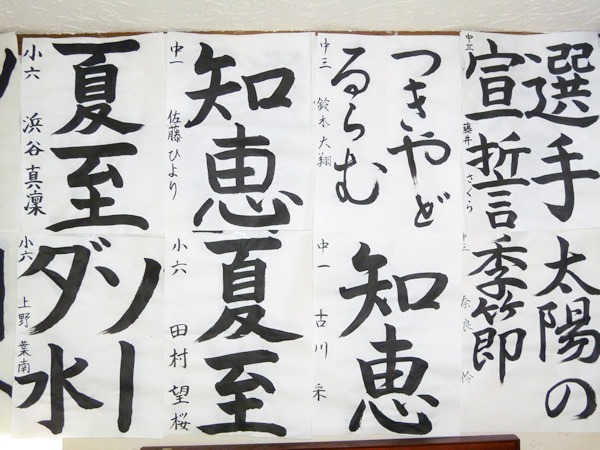 選手
宣誓
中三 藤井 さくら
つきやど
るらむ
中三 鈴木 大翔
知恵
中一 佐藤 ひより
夏至
小六 浜谷 真凜
太陽の
季節
中三 奈良 怜
知恵
中一 古川 采
夏至
小六 田村 望桜
ソー
ダ水
小六 上野 葉南